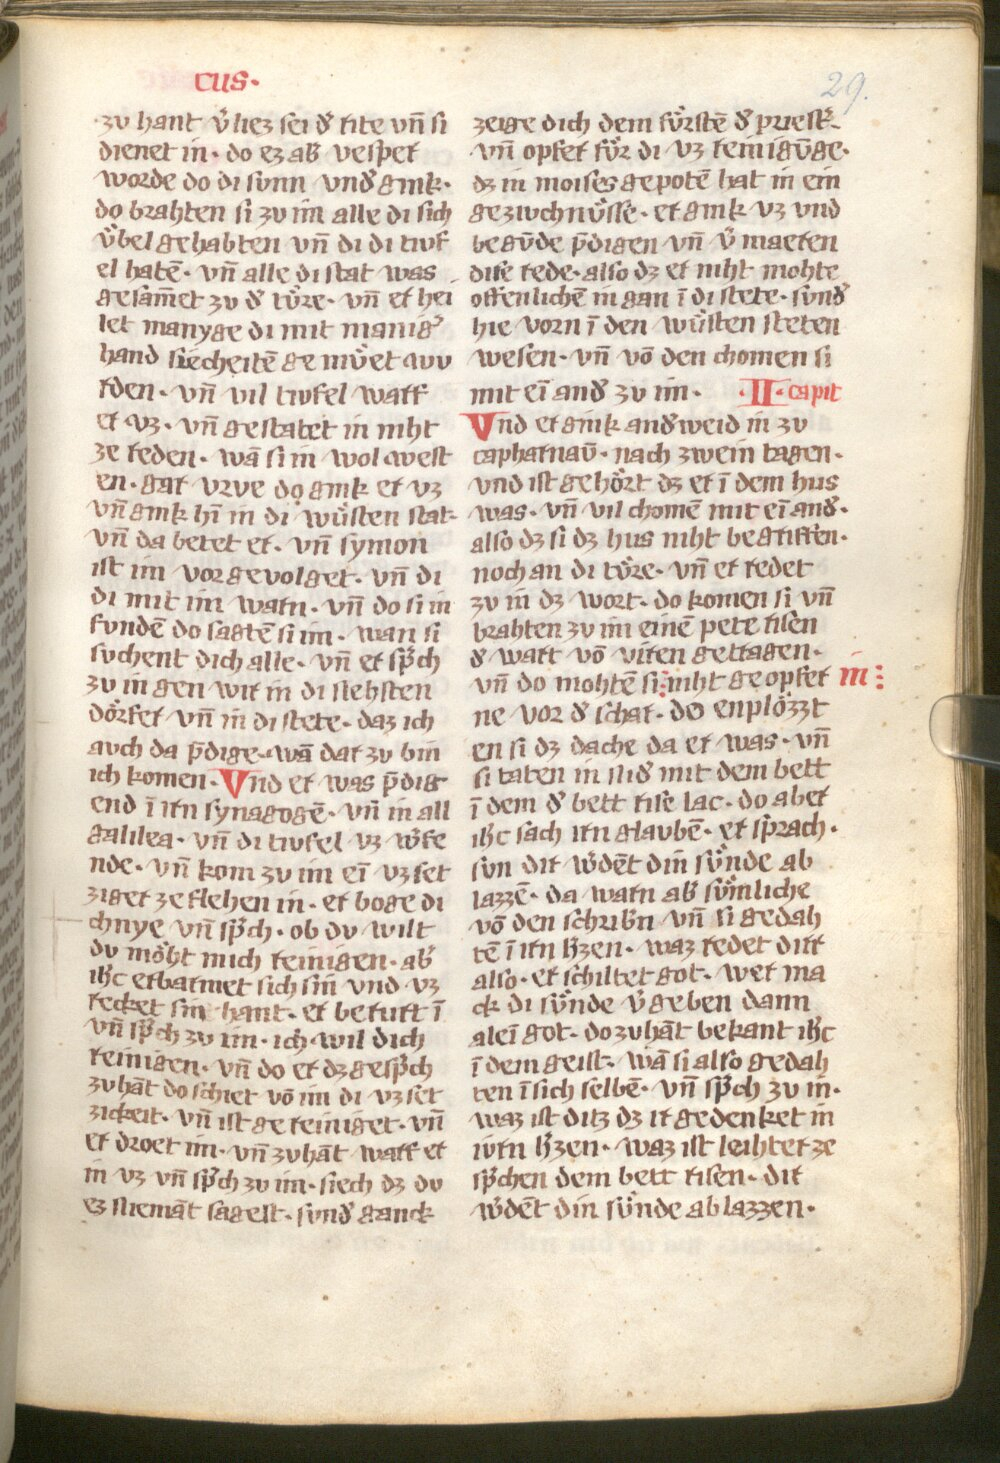 cus·
29.
zu hant v̓liez sei d̓ rite vn̄ si
dienet in· do ez ab̓ vesper
worde do di sunn und̓gink·
do brahten si zu im alle di sich
v̓bel gehabten vn̄ di di tiuf
el hatē· vn̄ alle di stat was
gesam̄et zu d̓ tv̊re· vn̄ er hei
let manyge di mit manig̓
hand siecheitē ge mv̊et wu
rden· vn̄ vil tiufel warf
er uz· vn̄ gestatet in niht
ze reden· wā si in wol west
en· gar vrue do gink er uz
vn̄ gink hī in di wv̊sten stat·
vn̄ da betet er· vn̄ symon
ist im vor gevolget· vn̄ di
di mit im warn· vn̄ do si in
fundē do sagtē si im· wan si
suchent dich alle· vn̄ er sp̓ch
zu in gen wir in di nehsten
dörfer vn̄ in di stete· daz ich
auch da p̄dige· wā dar zu bin
ich komen· Vnd er was p̄dig
end ī irn synagogē· vn̄ in all
galilea· vn̄ di tiufel uz w̓fe
nde· vn̄ kom zu im eī uzset
ziger ze flehen in· er boge di
chnye vn̄ sp̓ch· ob du wilt
du möht mich reinigen· ab̓
ih̓c erbarmet sich sin und uz
recket sin hant· er berurt ī
vn̄ sp̓ch zu im· ich wil dich
reinigen· vn̄ do er dz gesp̓ch
zuhāt do schiet vō im di uzset
zickeit· vn̄ ist ge reiniget· vn̄
er droet im· vn̄ zuhāt warf er
in uz vn̄ sp̓ch zu im· siech dz du
ez niemāt sagest· sund̓ ganck
zeige dich dem fv̊rstē d̓ priest̓·
vn̄ opfer fv̊r di uz reinigūge·
dz in moises gepotē hat in ein
geziuchnv̊sse· er gink uz und
begūde p̄digen vn̄ v̓ maeren
dise rede· also dz er niht mohte
offenlichē in gan ī di stete· sund̓
hie vorn ī den wv̊sten steten
wesen· vn̄ vō den chomen si
mit eī and̓ zu im· ·II· capit
Vnd er gink and̓weid in zu
capharnaū· nach zwein tagen·
und ist gehört dz er ī dem hus
was· vn̄ vil chomē mit eī and̓·
also dz si dz hus niht begriffen·
noch an di tv̊re· vn̄ er redet
zu in dz wort· do komen si vn̄
brahten zu im einē pete risen
d̓ wart vō viren getragen·
vn̄ do mohtē si in niht geopfer
ne vor d̓ schar· do enplözzt
en si dz dache da er was· vn̄
si taten in nid̓ mit dem bett
ī dem d̓ bett rise lac· do aber
ih̓c sach irn glaubē· er sprach·
sun dir w̓dēt din sv̊nde ab
lazzē· da warn ab̓ sv̊mliche
vō den schrib̓n vn̄ si gedah
tē ī irn h̓zen· waz redet dirr
also· er schiltet got· wer ma
ck di sv̊nde v̓geben dann
aleī got· do zuhāt bekant ih̓c
ī dem geist· wā si also gedah
ten ī sich selbē· vn̄ sp̓ch zu in·
waz ist ditz dz ir gedenket in
iurn h̓zen· waz ist leihter ze
sp̓chen dem bett risen· dir
w̓dēt din sv̊nde ablazzen·